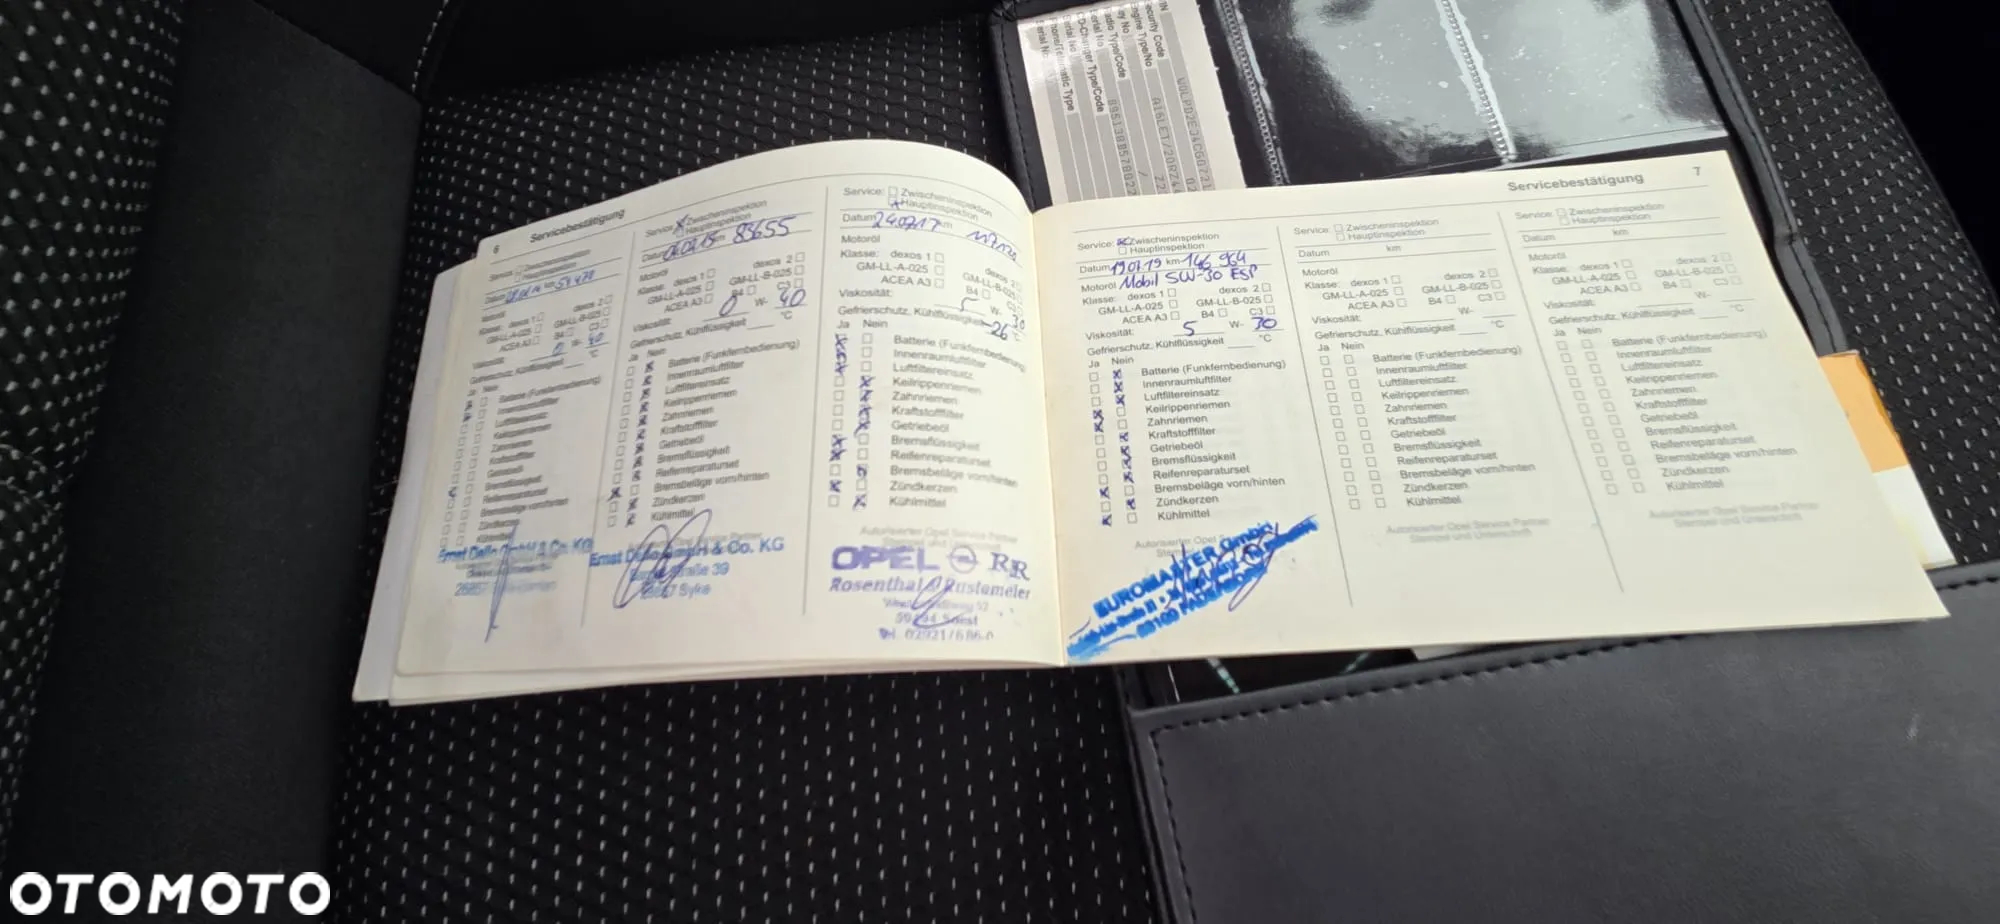 Security Code
Engine Type/No
Radio Type/Code
Serial No
CD-Changer Type/Code
Serial No
Phone/Telematic Type
Serial No
6
Servicebestätigung
Service: Zwischeninspektion
Hauptinspektion
Datum km
Motoröl
Klasse: dexos 1 dexos 2
GM-LL-A-025 GM-LL-B-025
ACEA A3 B4 C3
Viskosität: 0 W- 40
Gefrierschutz, Kühlflüssigkeit °C
Ja Nein
Batterie (Funkfernbedienung)
Innenraumluftfilter
Luftfiltereinsatz
Keilrippenriemen
Zahnriemen
Kraftstofffilter
Getriebeöl
Bremsflüssigkeit
Reifenreparaturset
Bremsbeläge vorn/hinten
Zündkerzen
Kühlmittel
Ernst Dello GmbH & Co. KG
Service: Zwischeninspektion
Hauptinspektion
Datum 04.02.15 km 83655
Motoröl
Klasse: dexos 1 dexos 2
GM-LL-A-025 GM-LL-B-025
ACEA A3 B4 C3
Viskosität: 0 W- 40
Gefrierschutz, Kühlflüssigkeit °C
Ja Nein
Batterie (Funkfernbedienung)
Innenraumluftfilter
Luftfiltereinsatz
Keilrippenriemen
Zahnriemen
Kraftstofffilter
Getriebeöl
Bremsflüssigkeit
Reifenreparaturset
Bremsbeläge vorn/hinten
Zündkerzen
Kühlmittel
Ernst Dello GmbH & Co. KG
28857 Syke
Service: Zwischeninspektion
Hauptinspektion
Datum 24.07.17 km
Motoröl
Klasse: dexos 1 dexos 2
GM-LL-A-025 GM-LL-B-025
ACEA A3 B4 C3
Viskosität: 5 30
Gefrierschutz, Kühlflüssigkeit -26 °C
Ja Nein
Batterie (Funkfernbedienung)
Innenraumluftfilter
Luftfiltereinsatz
Keilrippenriemen
Zahnriemen
Kraftstofffilter
Getriebeöl
Bremsflüssigkeit
Reifenreparaturset
Bremsbeläge vorn/hinten
Zündkerzen
Kühlmittel
Autorisierter Opel Service Partner
OPEL RR
Rosenthal & Rustemeier
59494 Soest
Servicebestätigung 7
Service: Zwischeninspektion
Hauptinspektion
Datum 19.07.19 km 146 964
Motoröl Mobil 5W-30 ESP
Klasse: dexos 1 dexos 2
GM-LL-A-025 GM-LL-B-025
ACEA A3 B4 C3
Viskosität: 5 W- 30
Gefrierschutz, Kühlflüssigkeit °C
Ja Nein
Batterie (Funkfernbedienung)
Innenraumluftfilter
Luftfiltereinsatz
Keilrippenriemen
Zahnriemen
Kraftstofffilter
Getriebeöl
Bremsflüssigkeit
Reifenreparaturset
Bremsbeläge vorn/hinten
Zündkerzen
Kühlmittel
EUROMASTER GmbH
Service: Zwischeninspektion
Hauptinspektion
Datum km
Motoröl
Klasse: dexos 1 dexos 2
GM-LL-A-025 GM-LL-B-025
ACEA A3 B4 C3
Viskosität: W-
Gefrierschutz, Kühlflüssigkeit °C
Ja Nein
Batterie (Funkfernbedienung)
Innenraumluftfilter
Luftfiltereinsatz
Keilrippenriemen
Zahnriemen
Kraftstofffilter
Getriebeöl
Bremsflüssigkeit
Reifenreparaturset
Bremsbeläge vorn/hinten
Zündkerzen
Kühlmittel
Autorisierter Opel Service Partner
Stempel und Unterschrift
Service: Zwischeninspektion
Hauptinspektion
Datum km
Motoröl
Klasse: dexos 1 dexos 2
GM-LL-A-025 GM-LL-B-025
ACEA A3 B4 C3
Viskosität: W-
Gefrierschutz, Kühlflüssigkeit °C
Ja Nein
Batterie (Funkfernbedienung)
Innenraumluftfilter
Luftfiltereinsatz
Keilrippenriemen
Zahnriemen
Kraftstofffilter
Getriebeöl
Bremsflüssigkeit
Reifenreparaturset
Bremsbeläge vorn/hinten
Zündkerzen
Kühlmittel
Autorisierter Opel Service Partner
Stempel und Unterschrift
OTOMOTO